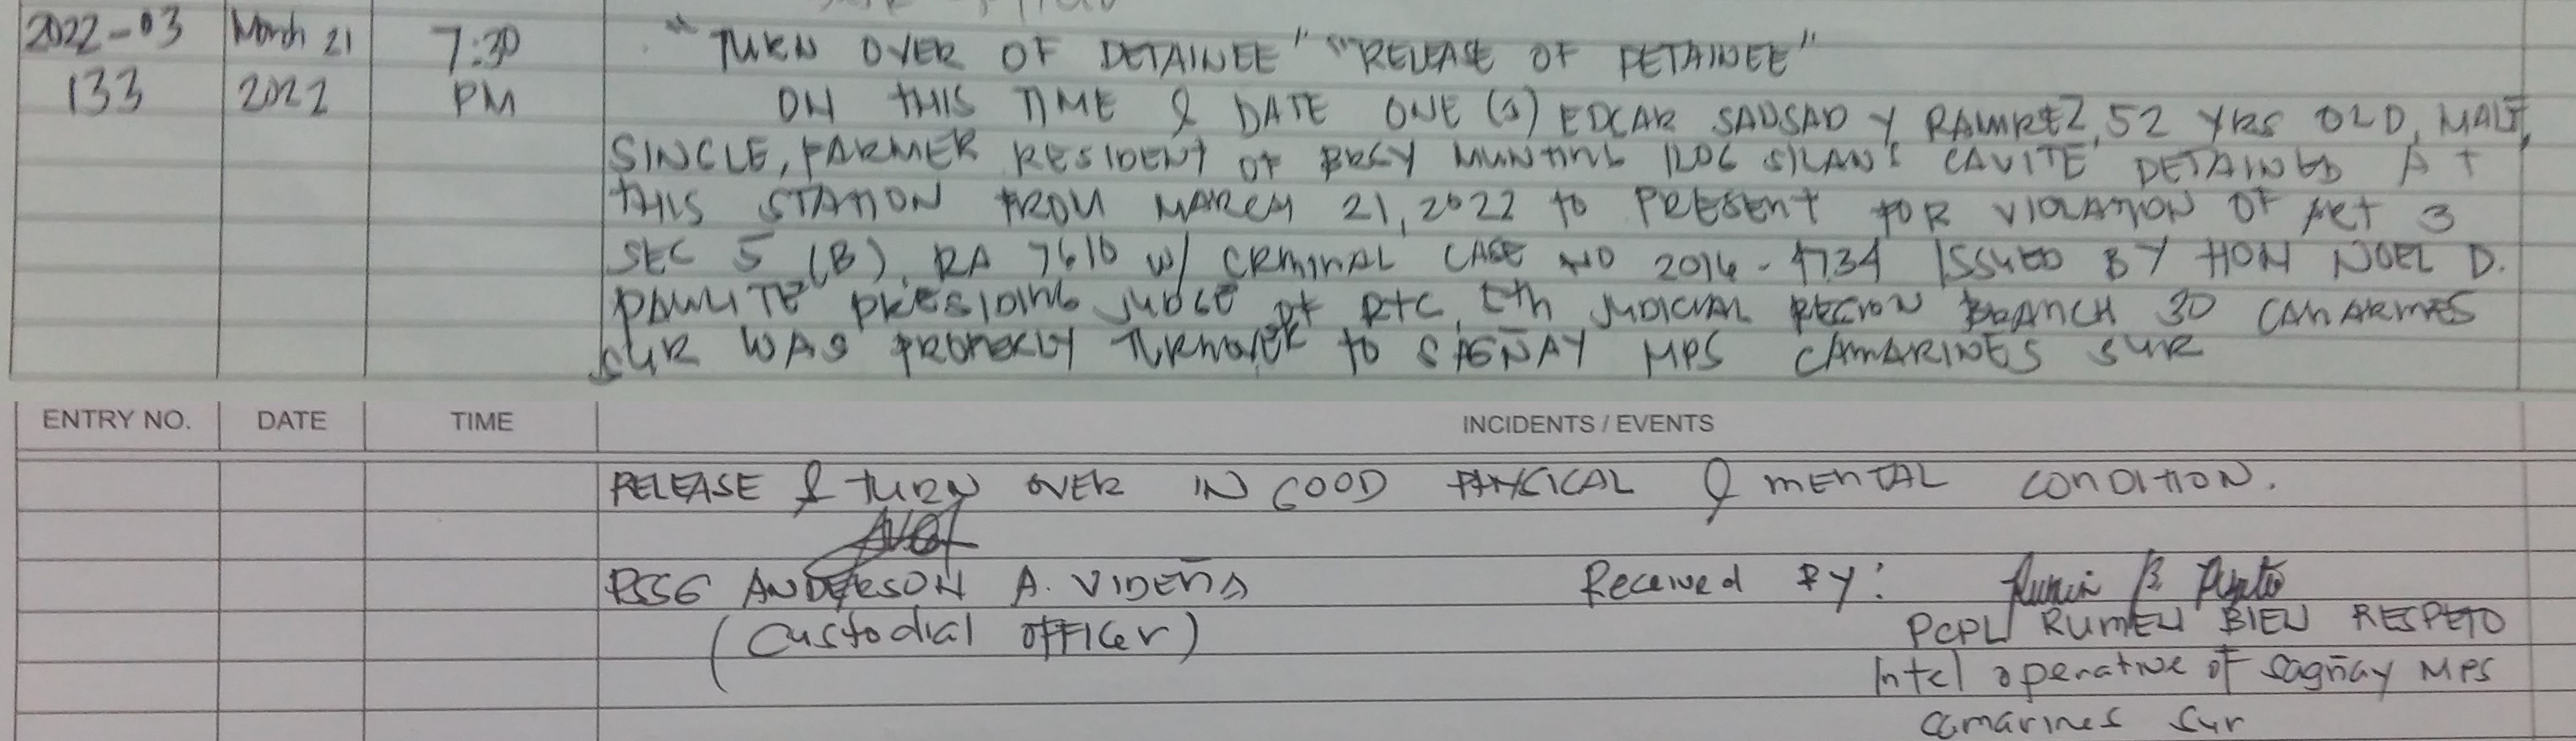 2022-03 March 21 7:30 " TURN OVER OF DETAINEE" "RELEASE OF DETAINEE"
133 2022 PM ON THIS TIME & DATE ONE (1) EDGAR SADSAD Y RAMIREZ, 52 YRS OLD, MALE,
SINGLE, FARMER RESIDENT OF BRGY MUNTING ILOG SILANG CAVITE DETAINED AT
THIS STATION FROM MARCH 21, 2022 to PRESENT FOR VIOLATION OF ART 3
SEC 5 (B), RA 7610 w/ CRMINAL CASE NO 2016-4734 ISSUED BY HON NOEL D.
PAULITE PRESIDING JUDGE OF RTC, 5th JUDICIAL REGION BRANCH 30 CAMARINES
SUR WAS PROPERLY TURNOVER TO SAGÑAY MPS CAMARINES SUR
ENTRY NO. DATE TIME INCIDENTS / EVENTS
RELEASE & TURN OVER IN GOOD PHYSICAL & MENTAL CONDITION.
PSSG ANDERSON A. VIDEÑA Received BY:
(Custodial OFFICer) PCPL RUMEN BIEN RESPETO
Intel operative of Sagñay MPS
Camarines Sur